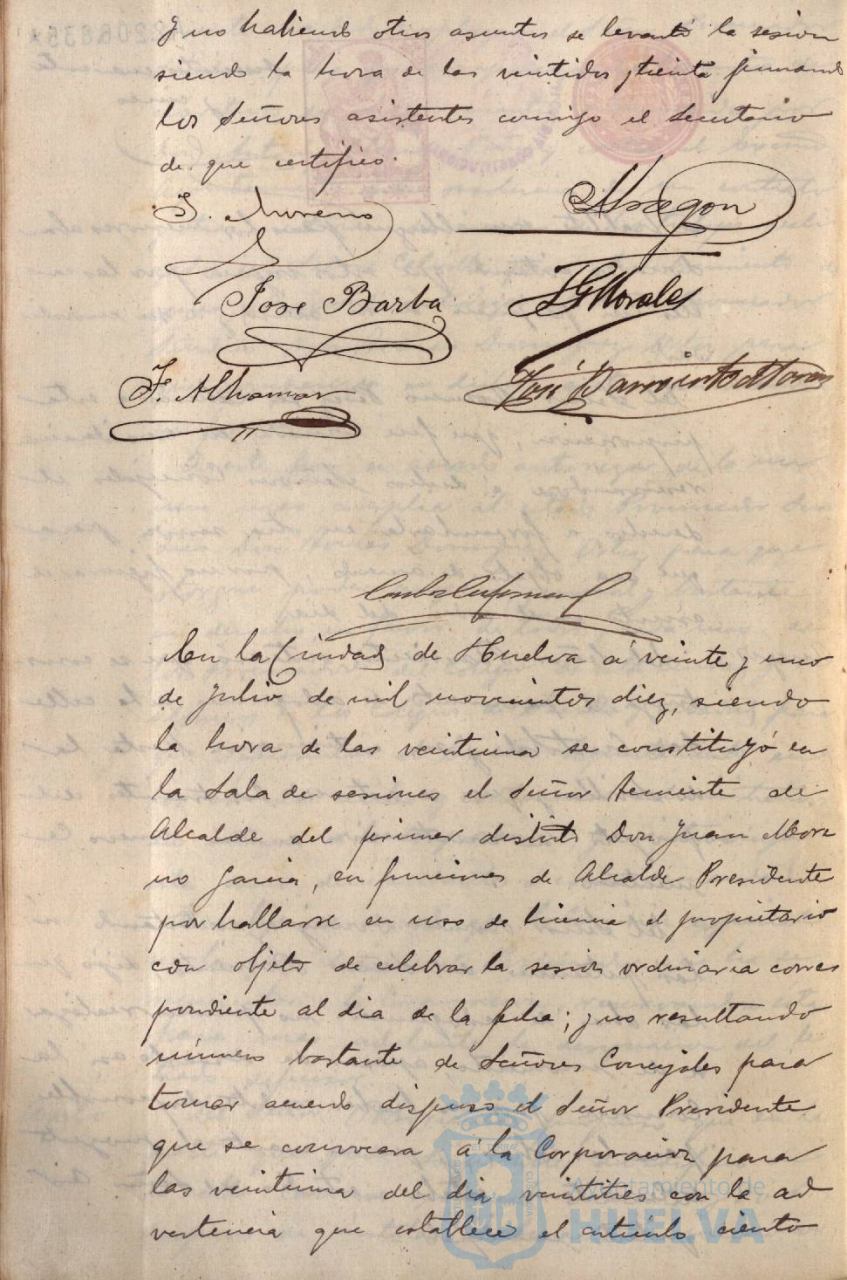 y no habiendo otros asuntos se levantó la sesion
siendo la hora de las veintidos y treinta firmando
los Señores asistentes conmigo el Secretario
de que certifico.
J. Moreno
Aragon
Jose Barba
F. Alhamar
José Barriento
En la Ciudad de Huelva á veinte y uno
de Julio de mil novecientos diez, siendo
la hora de las veintiuna se constituyó en
la Sala de sesiones el Señor teniente de
Alcalde del primer distrito Don Juan More
no Garcia, en funciones de Alcalde Presidente
por hallarse en uso de licencia el propietario
con objeto de celebrar la sesion ordinaria corres
pondiente al dia de la fecha; y no resultando
número bastante de Señores Concejales para
tomar acuerdo dispuso el Señor Presidente
que se convocara á la Corporacion para
las veintiuna del dia veintitres con la ad
vertencia que establece el articulo ciento
Ayuntamiento de
HUELVA